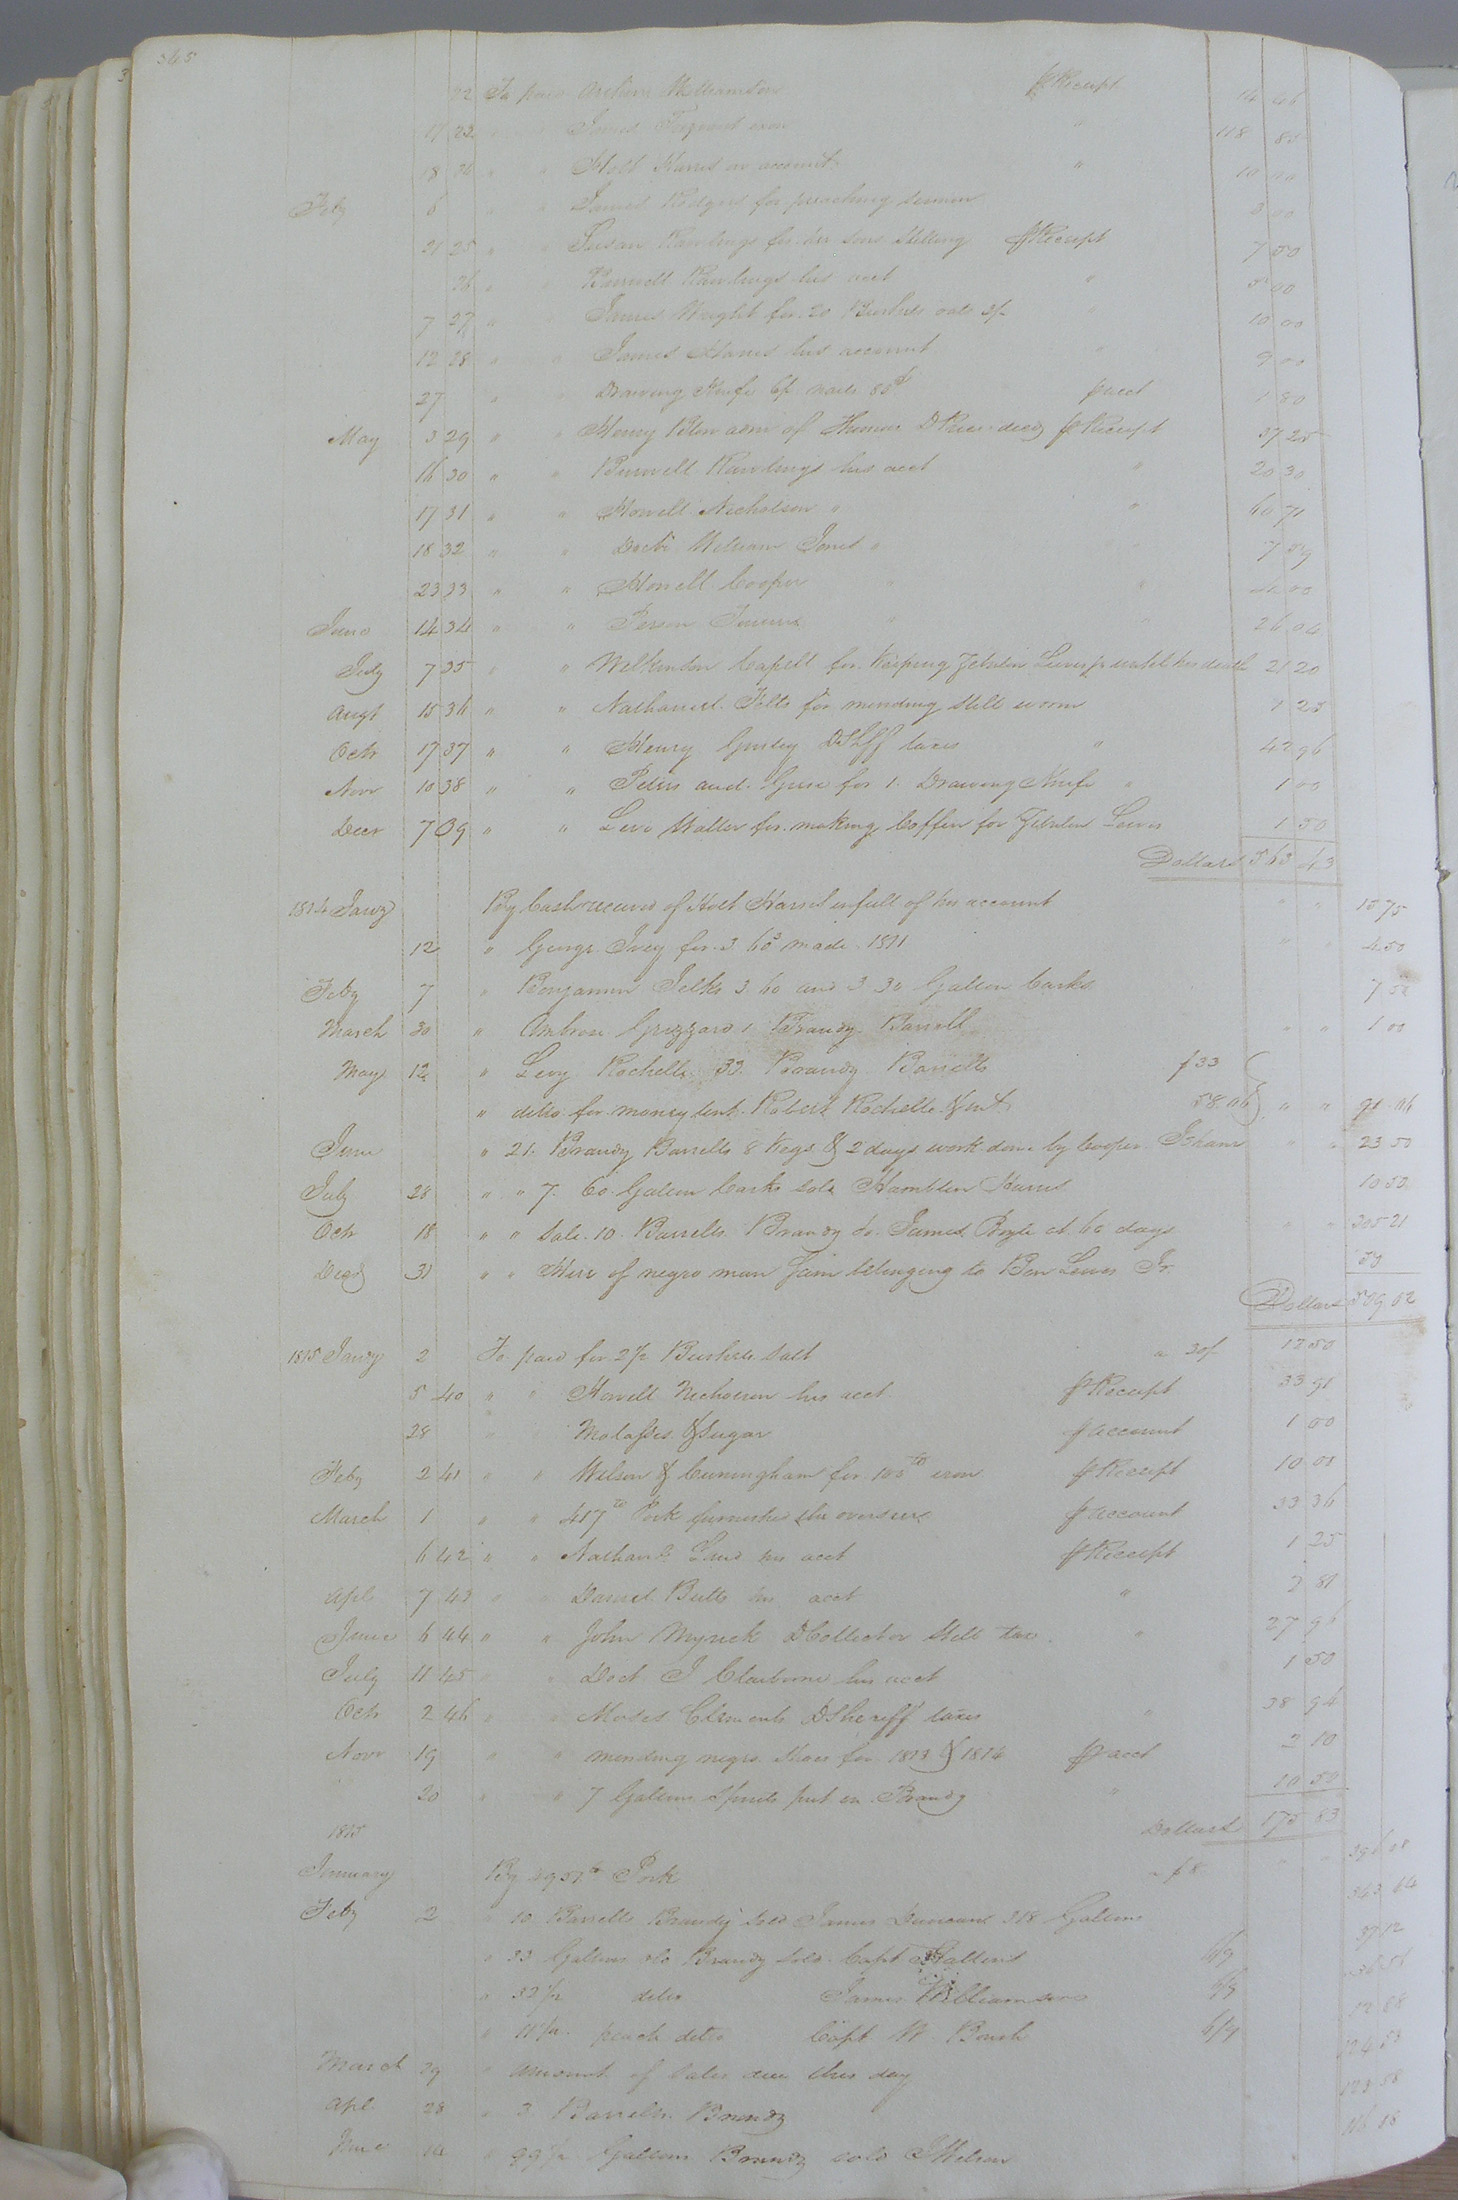 365
22 To paid Williamson pr Receipt 14 46
17 23 " " James exor " 118 85
18 24 " " Holt Harris on account " 10 00
Feby 6 " " James Rodgers for preaching sermon 3 00
21 25 " " Susan Rawlings for her sons Stilling pr Receipt 7 50
26 " " Burwell Rawlings his acct " 5 00
7 27 " " James Wright for 20 Bushels oats 3/ " 10 00
12 28 " " James Harris his account " 9 00
27 " " Drawing Knife 6/ nails 80 pr acct 1 80
May 3 29 " " Henry Blow adm of Thomas D Price decd pr Receipt 37 25
16 30 " " Burwell Rawlings his acct " 20 30
17 31 " " Howell Nicholson " " 60 71
18 32 " " Doctr William Jones " 7 59
23 33 " " Howell Cooper " "
June 14 34 " " Person Turner " " 26 04
July 7 35 " " Wilkinson Capell for Keeping Zebulon Lewis jr until his death 21 20
Augt 15 36 " " Nathaniel Felts for mending Still worm 1 25
Octr 17 37 " " Henry Gurley DShff taxes " 42 96
Novr 10 38 " " Peters and Guse for 1 Drawing Knife " 1 00
Decr 7 39 " " Levi Waller for making Coffin for Zebulon Lewis 1 50
Dollars 563 43
1814 Jany By Cash received of Holt Harris in full of his account " " 15 75
12 " George Ivey for 3 60s made 1811 " 4 50
Feby 7 " Benjamin Jelks 3 60 and 3 30 Gallon Casks 7 50
March 30 " Ambrose Grizzard 1 Brandy Barrell " " 1 00
May 12 " Levy Rochelle 33 Brandy Barrells $33
" ditto for money lent Robert Rochelle & int 58.06 " " 91.06
June " 21 Brandy Barrells 8 Kegs & 2 days work done by Cooper Isham " " 23 50
July 28 " " 7 60 Gallon Casks sold Hamblin Harris 10 50
Octr 18 " " Sale 10 Barrells Brandy to James Boyle at 60 days " " 305 21
Decr 31 " " Hire of negro man Jim belonging to Ben Lewis Jr. 50
Dollars 509 02
1815 Jany 2 To paid for 2 1/2 Bushels salt a 30/ 12 50
5 40 " " Howell Nicholson his acct pr Receipt 33 91
28 " Molasses & Sugar pr account 1 00
Feby 2 41 " " Wilson & Cuningham for 105 lb iron pr Receipt 10 00
March 1 " " 417 lb Pork furnished the overseer pr account 33 36
6 42 " " Nathan Land his acct pr Receipt 1 25
Apl 7 43 " " Daniel Butts his acct " 2 81
June 6 44 " " John Myrick DCollector Still tax " 27 96
July 11 45 " " Doct J Claiborne his acct 1 50
Octr 2 46 " " Moses Clements DSheriff taxes " 38 94
Novr 19 " " mending negro Shoes for 1813 & 1814 pr acct 2 10
20 " " 7 Gallons Spirits put in Brandy " 10 50
Dollars 175 83
1815
January By 4951 lb Pork a $8 " " 396 08
Feby 2 " 10 Barrells Brandy sold James Duncan 318 Gallons 363 64
" 33 Gallons do Brandy sold Capt Hallens 6/9 37 12
" 32 1/2 ditto James Williamson 6/9 36 56
" 11 1/2 peach ditto Capt W Boush 6/9 12 88
March 29 " amount of Sales due this day
Apl 28 " 3 Barrells Brandy 123 58
June 14 " 99 1/2 Gallons Brandy sold JWilson 116 16